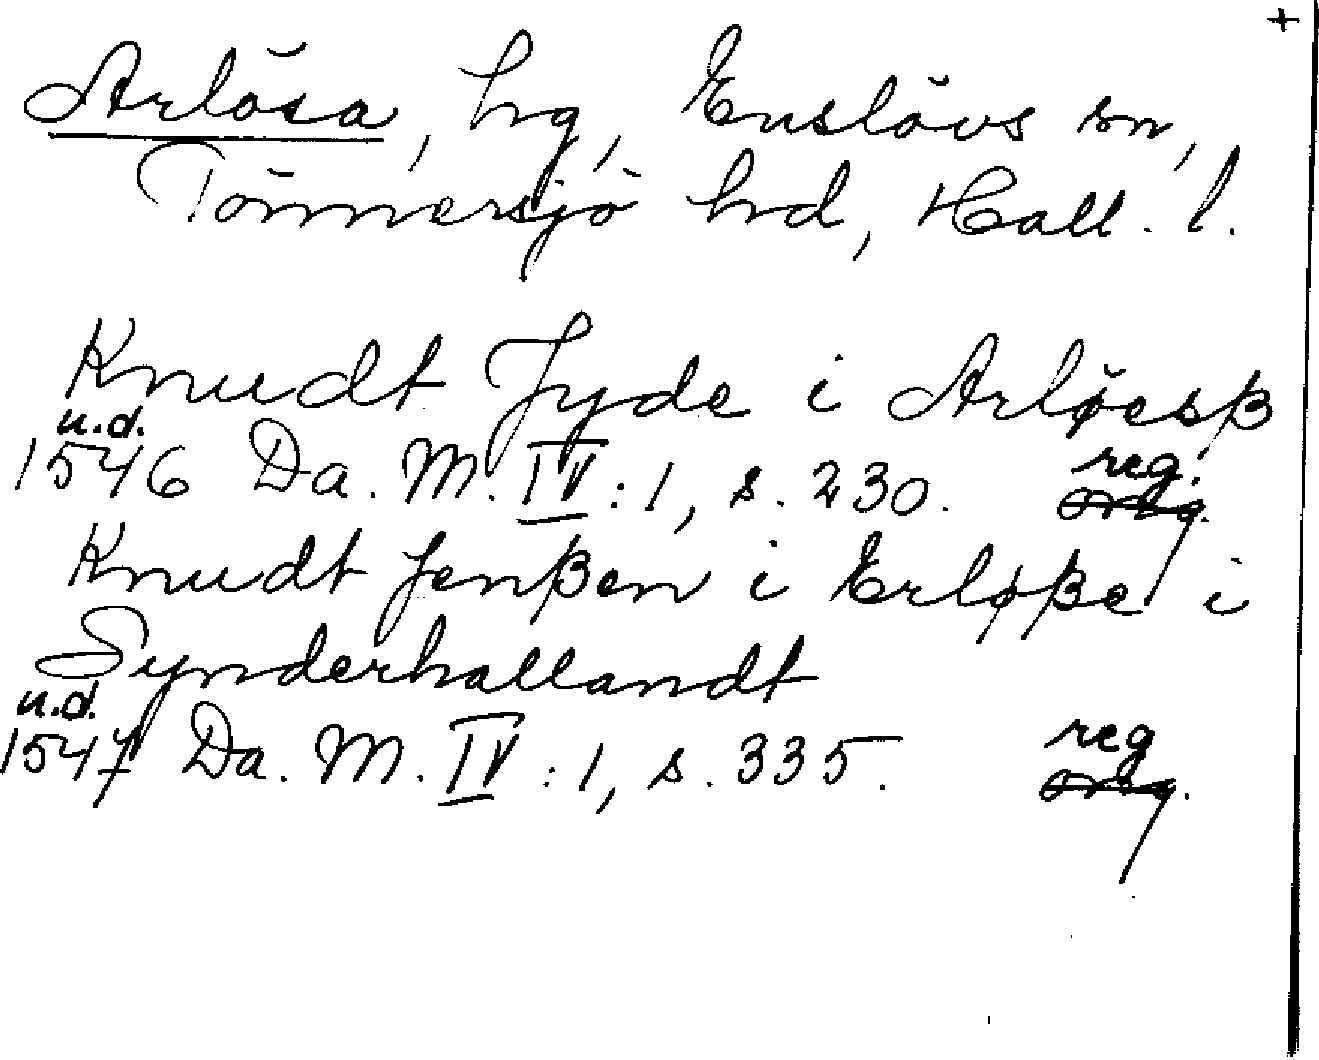 +
Arlösa, hg, Enslövs sn,
Tönnersjö hd, Hall. l.
Knudt Jyde i Arløesß
u.d.
1546 Da. M. IV:1, s. 230. reg.
orig.
Knudt Jenßen i Erløße i
Synderhallandt
u.d.
1547 Da. M. IV:1, s. 335. reg
orig.